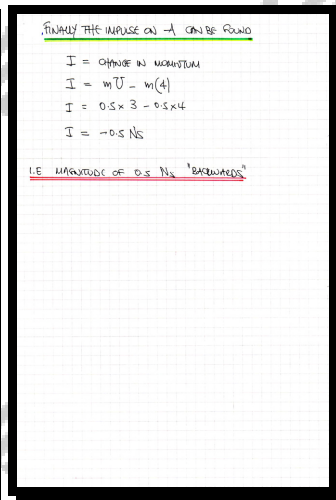 FINALLY THE IMPULSE ON A CAN BE FOUND
I = CHANGE IN MOMENTUM
I = mU - m(4)
I = 0.5 × 3 - 0.5×4
I = -0.5 Ns
I.E MAGNITUDE OF 0.5 Ns "BACKWARDS"